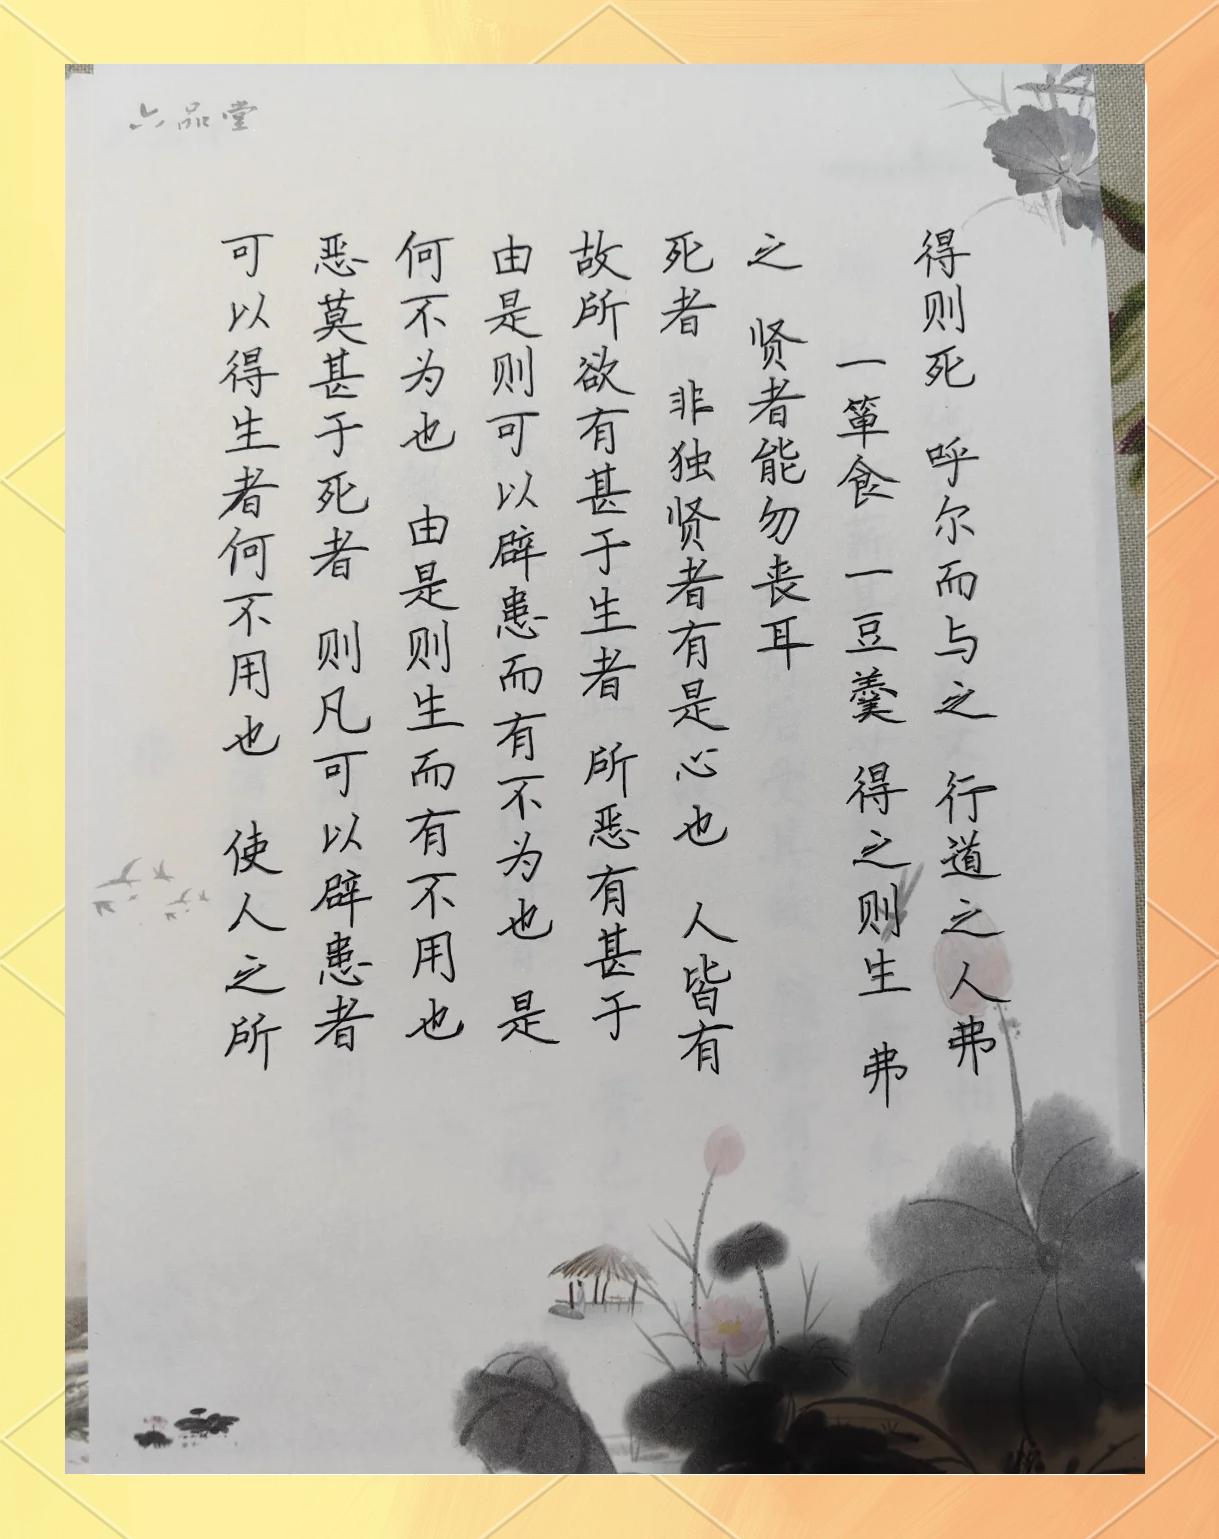 六品堂
可以得生者何不用也 使人之所
恶莫甚于死者 则凡可以辟患者
何不为也 由是则生而有不用也
由是则可以辟患而有不为也 是
故所欲有甚于生者 所恶有甚于
死者 非独贤者有是心也 人皆有
之 贤者能勿丧耳
一箪食 一豆羹 得之则生 弗
得则死 呼尔而与之 行道之人弗